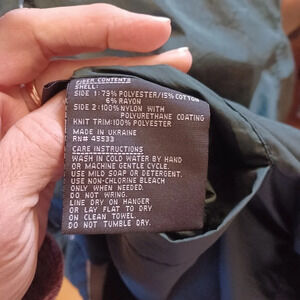 FIBER CONTENTS
SHELL:
SIDE 1:79% POLYESTER/15% COTTON
6% RAYON
SIDE 2:100% NYLON WITH
POLYURETHANE COATING
KNIT TRIM:100% POLYESTER
MADE IN UKRAINE
RN# 45533
CARE INSTRUCTIONS
WASH IN COLD WATER BY HAND
OR MACHINE GENTLE CYCLE.
USE MILD SOAP OR DETERGENT.
USE NON-CHLORINE BLEACH
ONLY WHEN NEEDED.
DO NOT WRING.
LINE DRY ON HANGER
OR LAY FLAT TO DRY
ON CLEAN TOWEL.
DO NOT TUMBLE DRY.